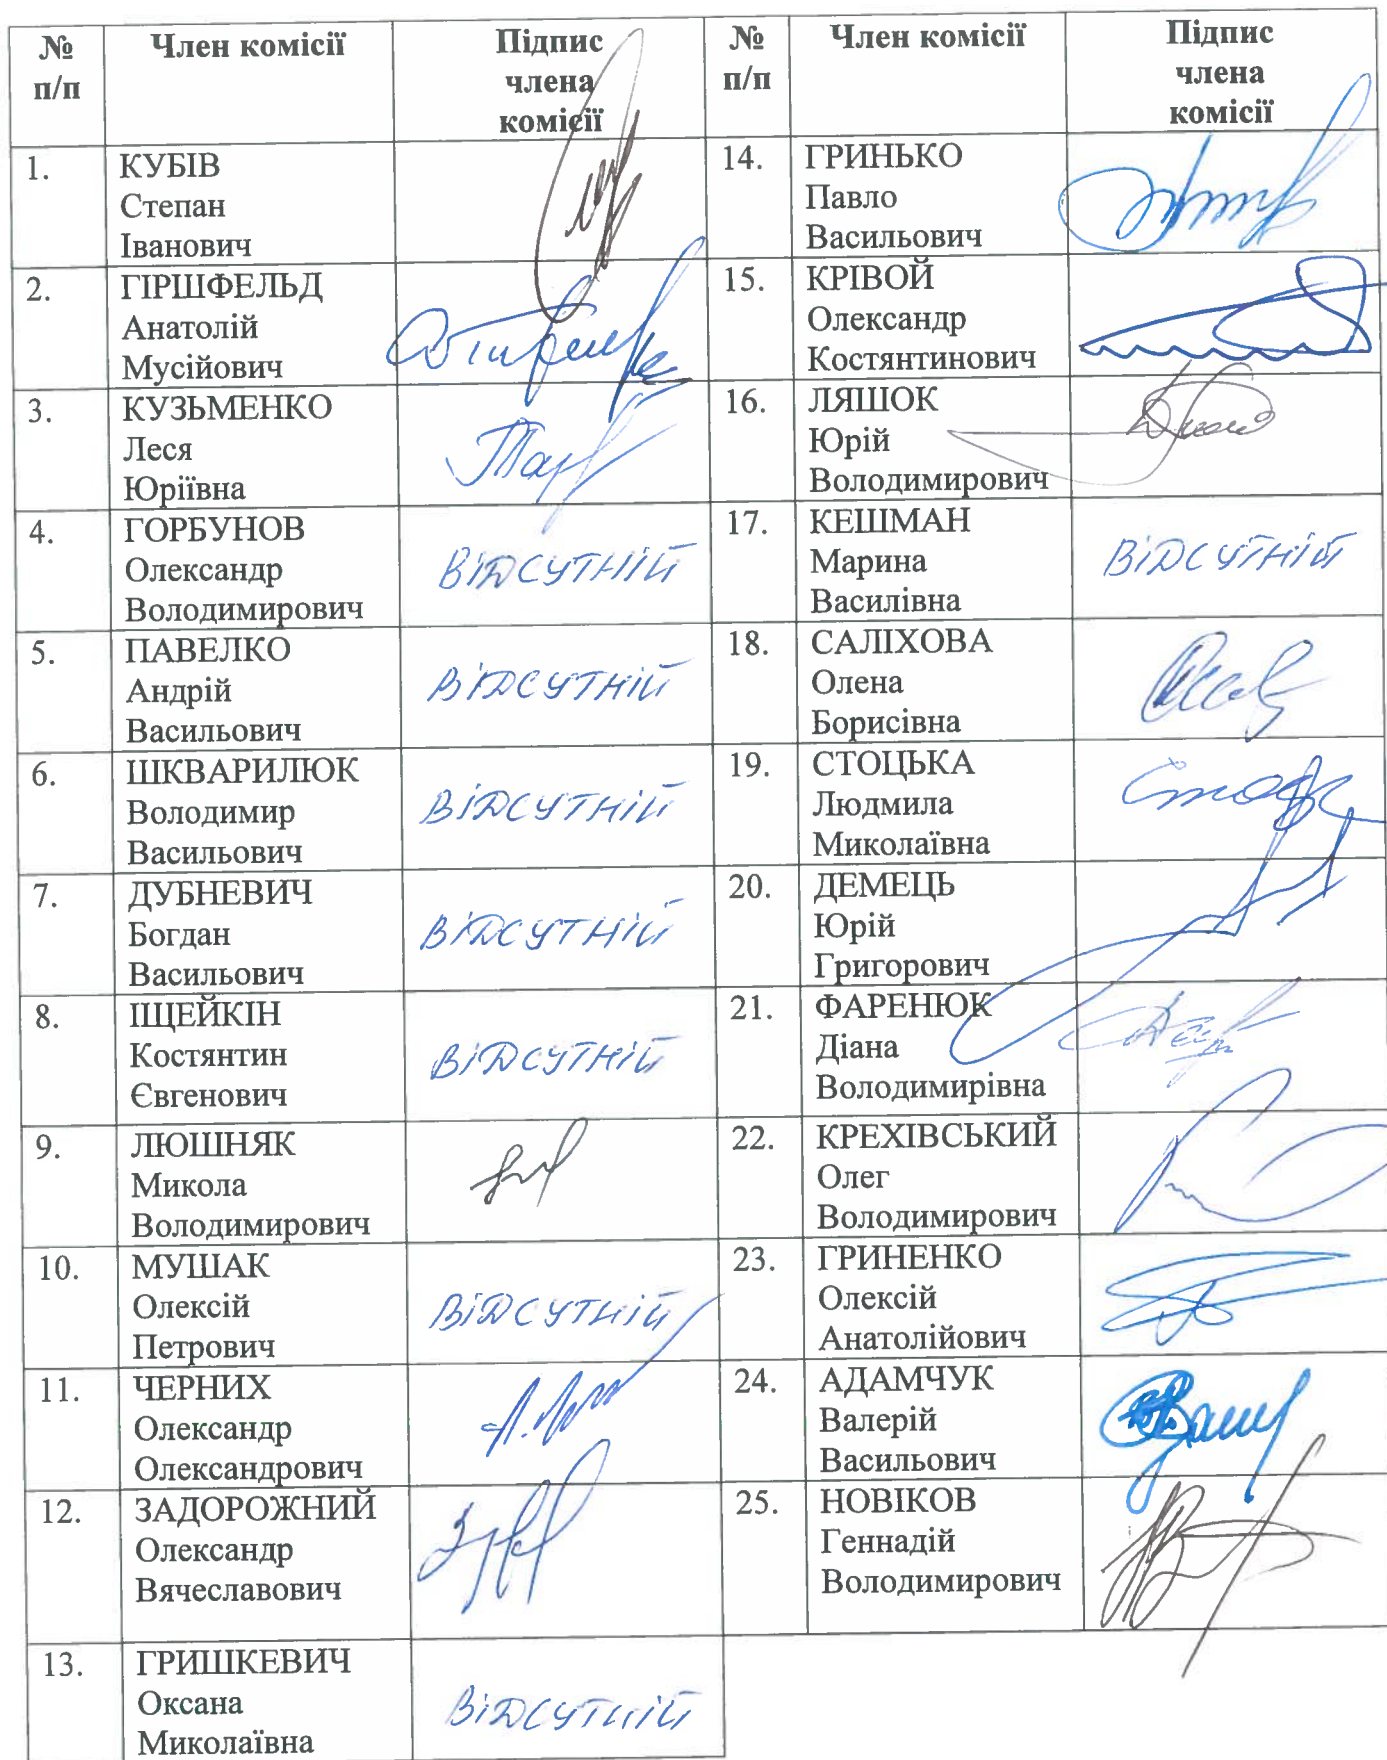 № п/п
Член комісії
Підпис члена комісії
№ п/п
Член комісії
Підпис члена комісії
1.
КУБІВ
Степан
Іванович
2.
ГІРШФЕЛЬД
Анатолій
Мусійович
3.
КУЗЬМЕНКО
Леся
Юріївна
4.
ГОРБУНОВ
Олександр
Володимирович
ВІДСУТНІЙ
5.
ПАВЕЛКО
Андрій
Васильович
ВІДСУТНІЙ
6.
ШКВАРИЛЮК
Володимир
Васильович
ВІДСУТНІЙ
7.
ДУБНЕВИЧ
Богдан
Васильович
ВІДСУТНІЙ
8.
ІЩЕЙКІН
Костянтин
Євгенович
ВІДСУТНІЙ
9.
ЛЮШНЯК
Микола
Володимирович
10.
МУШАК
Олексій
Петрович
ВІДСУТНІЙ
11.
ЧЕРНИХ
Олександр
Олександрович
12.
ЗАДОРОЖНИЙ
Олександр
Вячеславович
13.
ГРИШКЕВИЧ
Оксана
Миколаївна
ВІДСУТНІЙ
14.
ГРИНЬКО
Павло
Васильович
15.
КРІВОЙ
Олександр
Костянтинович
16.
ЛЯШОК
Юрій
Володимирович
17.
КЕШМАН
Марина
Василівна
ВІДСУТНІЙ
18.
САЛІХОВА
Олена
Борисівна
19.
СТОЦЬКА
Людмила
Миколаївна
20.
ДЕМЕЦЬ
Юрій
Григорович
21.
ФАРЕНЮК
Діана
Володимирівна
22.
КРЕХІВСЬКИЙ
Олег
Володимирович
23.
ГРИНЕНКО
Олексій
Анатолійович
24.
АДАМЧУК
Валерій
Васильович
25.
НОВІКОВ
Геннадій
Володимирович